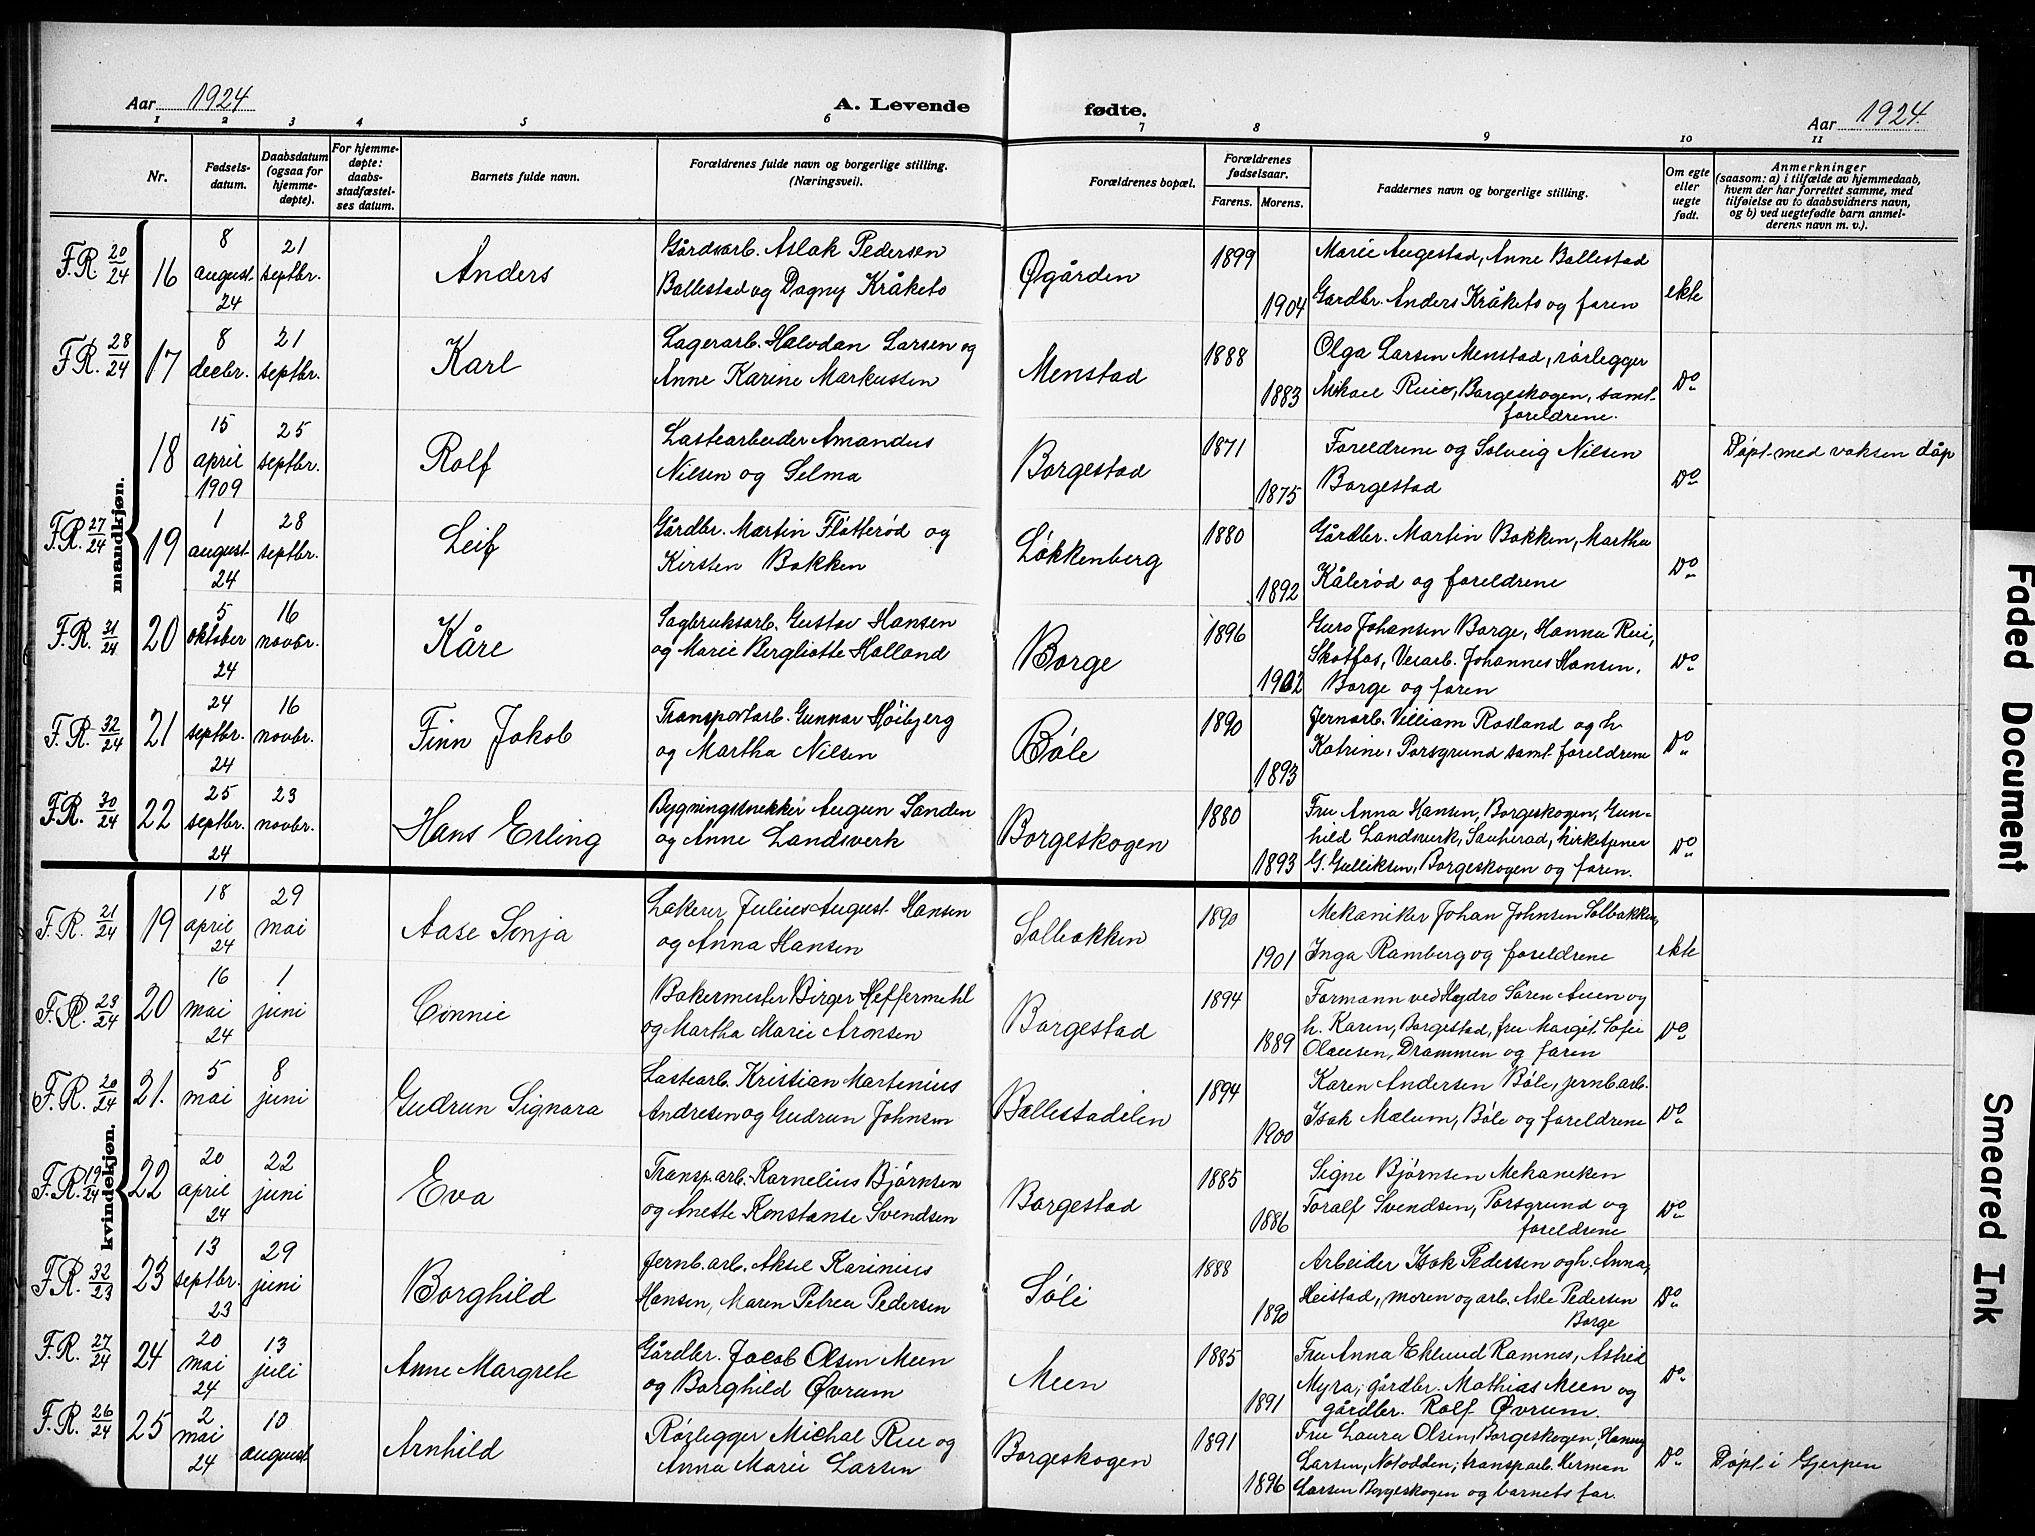 Aar 1924
A. Levende fødte.
Aar 1924.
1 2 3 4 5 6 7 8 9 10 11
Nr.
Fødsels-
datum.
Daabsdatum
(ogsaa for
hjemme-
døpte).
For hjemme-
døpte:
daabs-
stadfæstel-
ses datum.
Barnets fulde navn.
Forældrenes fulde navn og borgerlige stilling.
(Næringsvei).
Forældrenes bopæl.
Forældrenes
fødselsaar.
Farens. Morens.
Faddernes navn og borgerlige stilling.
Om egte
eller
uegte
født.
Anmerkninger
(saasom: a) i tilfælde av hjemmedaab,
hvem der har forrettet samme, med
tilføielse av to daabsvidners navn,
og b) ved uegtefødte barn anmel-
derens navn m. v.).
mandkjøn.
F.R. 20/24
16
8
august
24
21
septbr.
Anders
Gårdsarb. Aslak Pedersen
Ballestad og Dagny Kråkets
Øgården
1899
1904
Marie Augestad, Anne Ballestad
Gardbr. Anders Kråkets og faren
ekte
F.R. 28/24
17
8
decbr.
21
septbr.
Karl
Lagerarb. Halvdan Larsen og
Anne Karine Markussen
Menstad
1888
1883
Olga Larsen Menstad, rørlegger
Mikael Rui, Borgeskogen, samt
foreldrene.
Do
18
15
april
1909
25
septbr.
Rolf
Lastearbeider Amandus
Nilsen og Selma
Borgestad
1871
1875
Foreldrene og Solveig Nilsen
Borgestad
Do
Døpt med voksen dåp
F.R. 27/24
19
1
august
24
28
septbr.
Leif
Gårdbr. Martin Fløtterød og
Kirsten Bakken
Løkkenberg
1880
1892
Gårdbr. Martin Bakken, Martha
Kålerød og foreldrene
Do
F.R. 31/24
20
5
oktober
24
16
novbr.
Kåre
Sagbruksarb. Gustav Hansen
og Marie Bergliotte Halland
Borge
1896
1902
Guro Johansen Borge, Hanna Rui,
Skotfos, Verarb. Johannes Hansen,
Borge og faren
Do
F.R. 32/24
21
24
septbr.
24
16
novbr.
Finn Jakob
Transportarb. Gunnar Høibjerg
og Martha Nilsen
Bøle
1890
1893
Jernarb. William Rosland og h.
Katrine, Porsgrund samt foreldrene
Do
F.R. 30/24
22
25
septbr.
24
23
novbr.
Hans Erling
Bygningssnekker Augun Sanden
og Anne Landsverk
Borgeskogen
1880
1893
Fru Anna Hansen, Borgeskogen, Gun=
hild Landsverk, Sauherad, kirketjener
G. Gulliksen, Borgeskogen og faren.
Do
kvindekjøn.
F.R. 21/24
19
18
april
24
29
mai
Aase Sonja
Lakerer Julius August Hansen
og Anna Hansen
Solbakken
1890
1901
Mekaniker Johan Johnsen Solbakken,
Inga Ramberg og foreldrene
ekte
F.R. 23/24
20
16
mai
24
1
juni
Connie
Bakermester Birger Heffermehl
og Martha Marie Aronsen
Borgestad
1894
1889
Formann ved Hydro Søren Auen og
h. Karen, Borgestad, fru Margit Sofie
Olausen, Drammen og faren
Do
F.R. 20/24
21.
5
mai
8
juni
Gudrun Signora
Lastearb. Kristian Martinius
Andresen og Gudrun Johnsen
Ballestadilen
1894
1900
Karen Andersen Bøle, jernb.arb.
Isak Mælum, Bøle og foreldrene
Do
F.R. 19/24
22
20
april
24
22
juni
Eva
Transp.arb. Kornelius Bjørnsen
og Anette Konstanse Svendsen
Borgestad
1885
1886
Signe Bjørnsen Mekaniken
Toralf Svendsen, Porsgrund og
foreldrene
Do
F.R. 32/23
23
13
septbr.
23
29
juni
Borghild
Jernb.arb. Aksel Karinius
Hansen, Maren Petrea Pedersen
Søli
1888
1890
Arbeider Isak Pedersen og h. Anna,
Heistad, moren og arb. Asle Pedersen
Borge
Do
F.R. 27/24
24
20
mai
24
13
juli
Anne Margrete
Gårdbr. Jacob Olsen Meen
og Borghild Øvrum
Meen
1885
1891
Fru Anna Eklund Ramnes, Astrid
Myra, gårdbr. Mathias Meen og
gårdbr. Rolf Øvrum.
Do
F.R. 26/24
25
2
mai
24
10
august
Arnhild
Rørlegger Michal Rui og
Anna Marie Larsen
Borgeskogen
1891
1896
Fru Laura Olsen, Borgeskogen, Hanny
Larsen, Notodden, transp.arb. Herman
Larsen Borgeskogen og barnets far.
Do
Døpt i Gjerpen
Faded Document
Smeared Ink